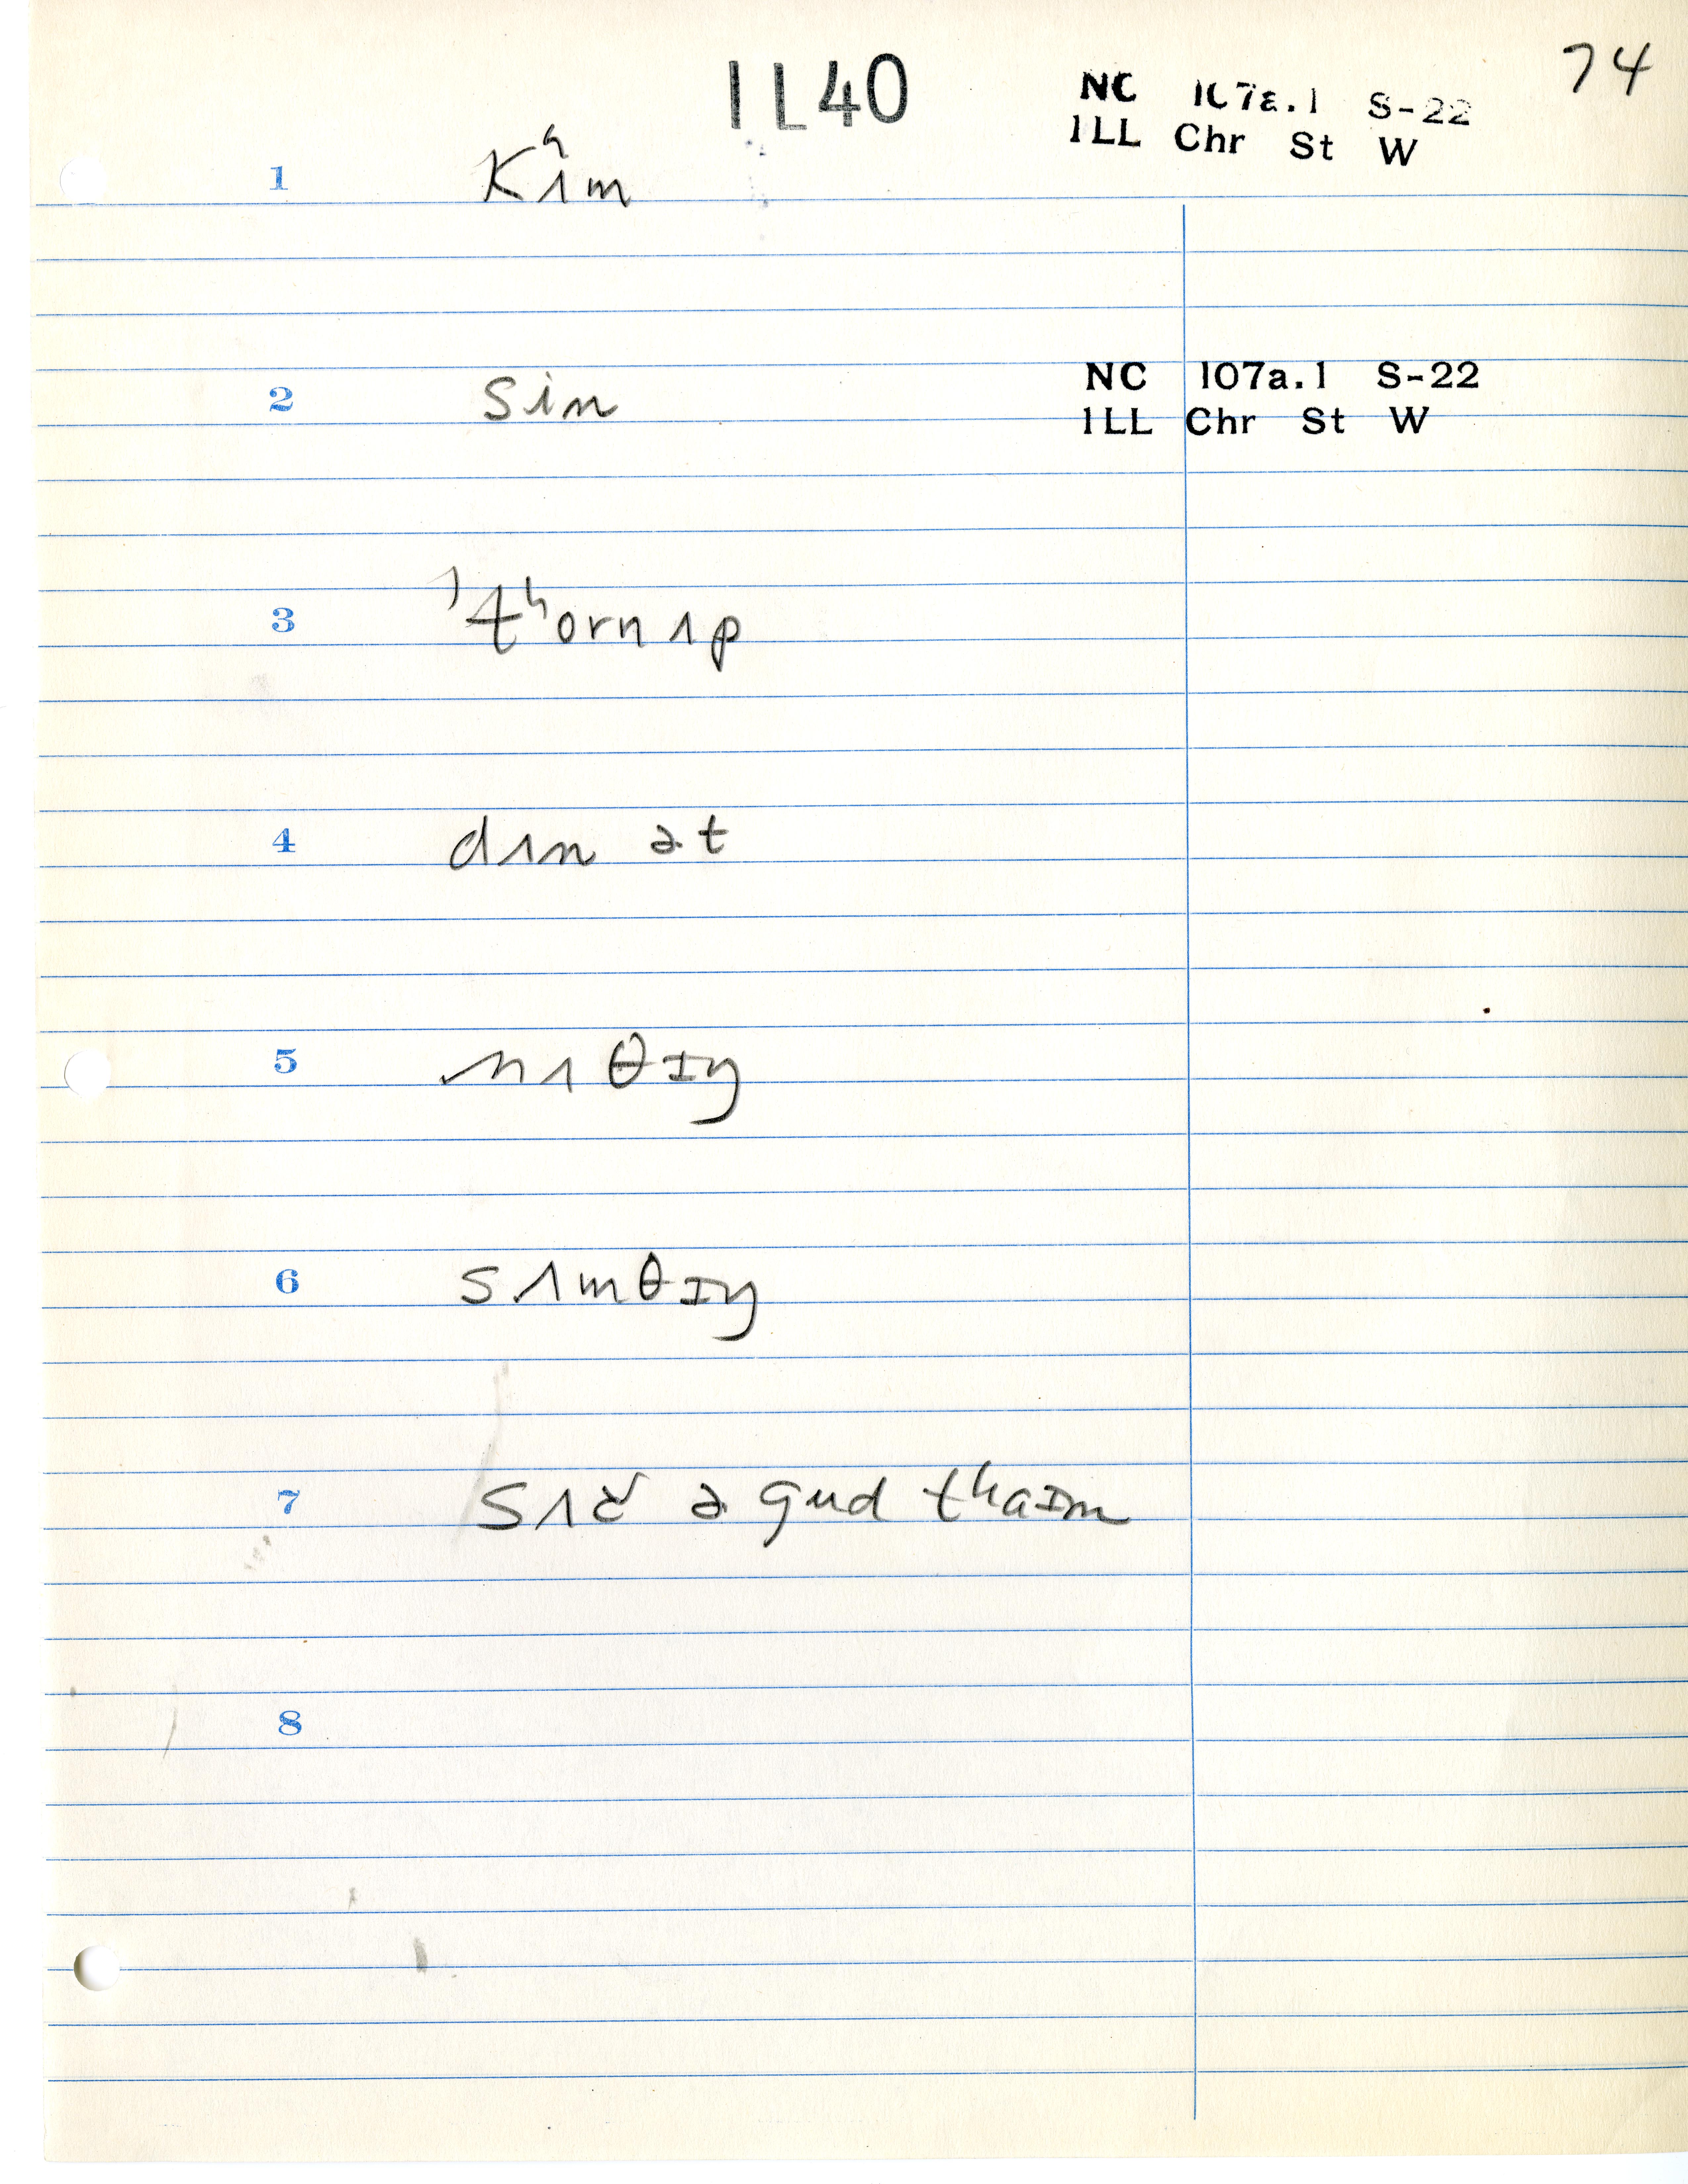 74
1L40
NC 107a.1 S-22
1LL Chr St W
1 Kʰʌm
2 sin
NC 107a.1 S-22
1LL Chr St W
3 'tʰornʌp
4 dʌn ət
5 nʌθɪŋ
6 sʌmθɪŋ
7 sʌč ə gud tʰaɪm
8